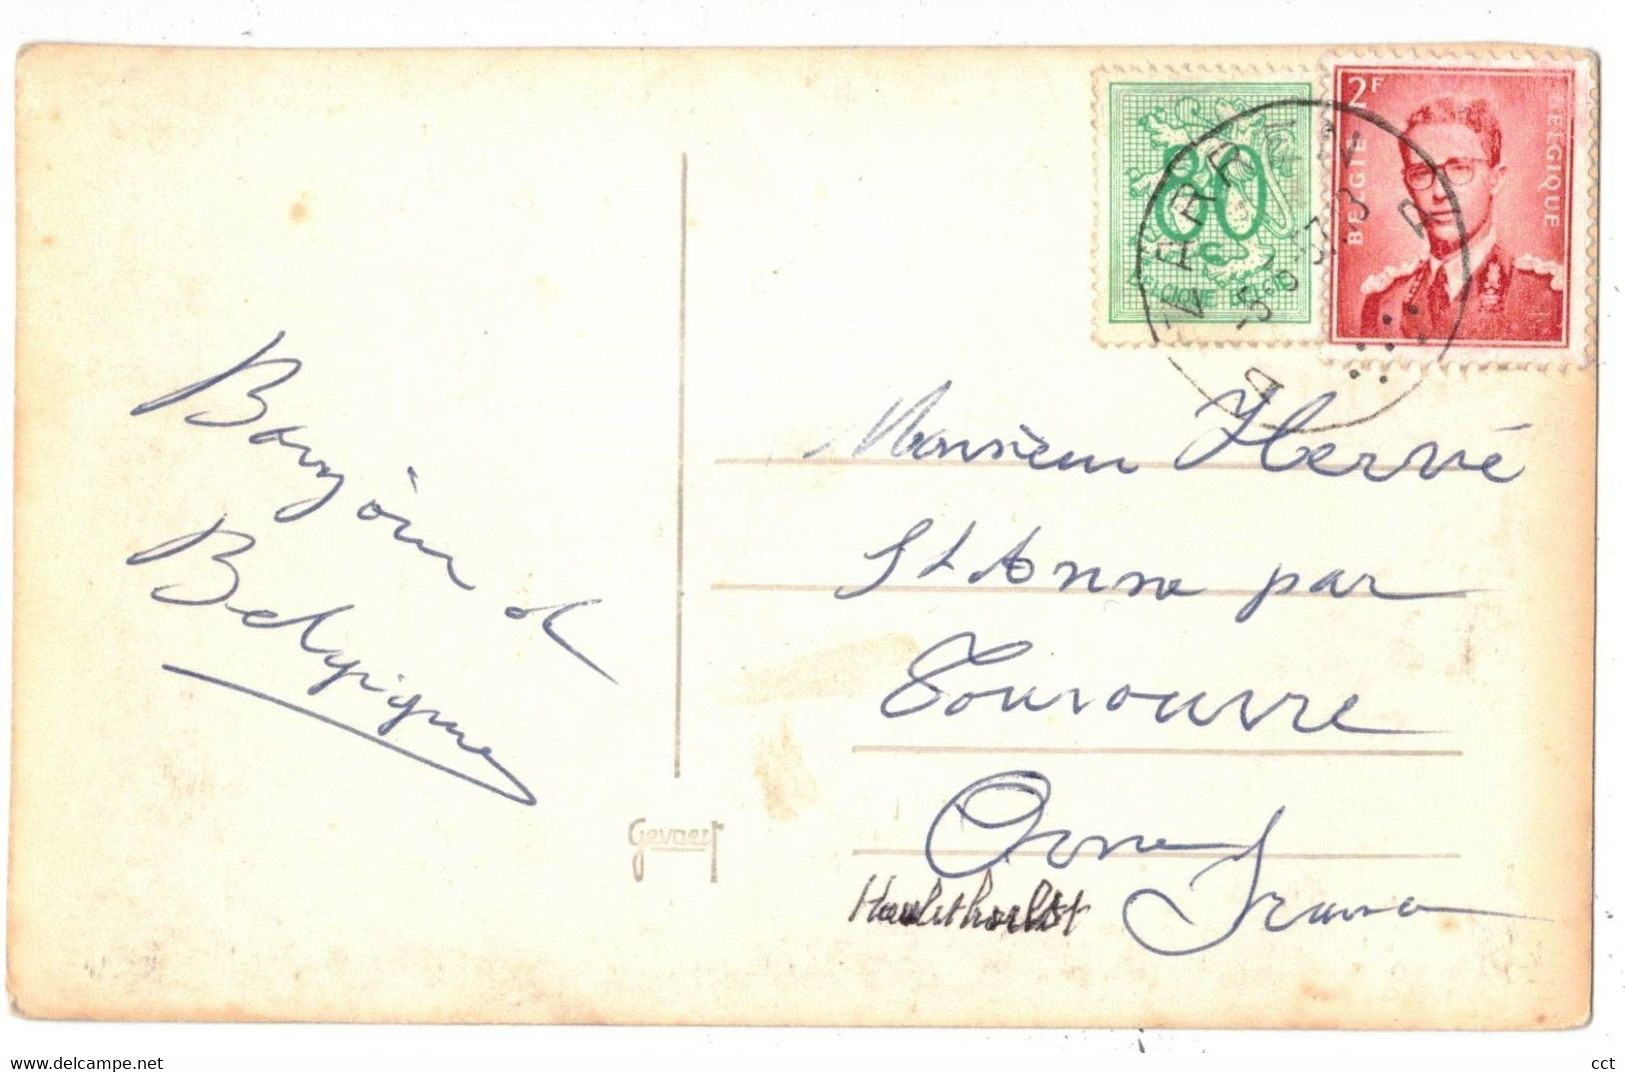 80
c
BELGIQUE BELGIE
2F
BELGIE
BELGIQUE
WARREN
Bonjour de
Belgique
Monsieur Hervé
St Anne par
Tourouvre
Orne
France
Gevaert
www.delcampe.net
cct